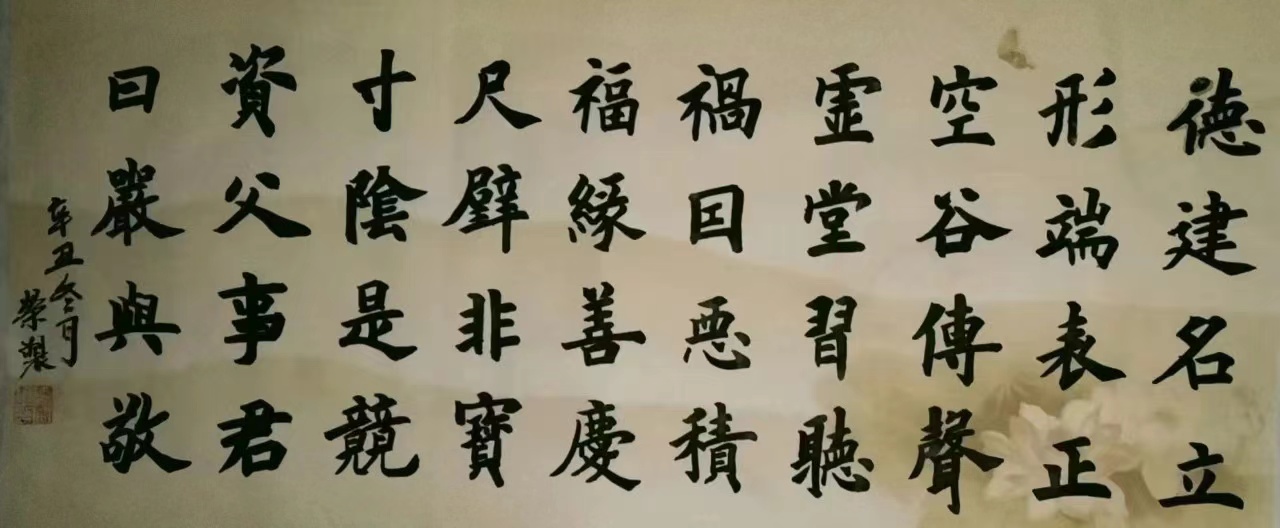 德建名立
形端表正
空谷傳聲
霊堂習聽
禍囙悪積
福緣善慶
尺璧非寶
寸陰是競
資父事君
曰嚴與敬
辛丑冬月
榮